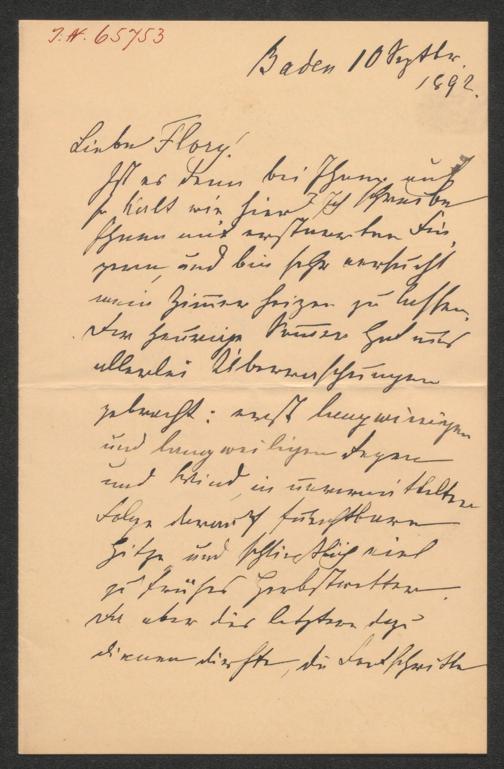 J.N. 65753
Baden 10 Septbr.
1892.
Liebe Flory!
Ist es denn bei Ihnen auch
so kalt wie hier? Ich schreibe
Ihnen mit erstarrten Fin-
gern, und bin sehr versucht
mein Zimmer heizen zu lassen.
Der heurige Sommer hat uns
allerlei Überraschungen
gebracht: erst langwierigen
und langweiligen Regen
und Wind, in unvermittelter
Folge darauf furchtbare
Hitze und schließlich viel
zu frühes Herbstwetter.
Da aber das letztere dazu
dienen dürfte, die Fortschritte